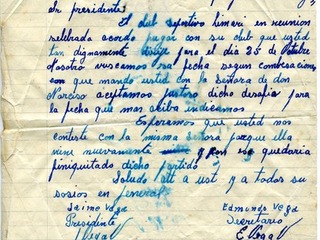 Sr presidente
El club deportivo Limari en reunion
selebrada acordo jugar con su club que usted
tan dignamente dirise para el dia 25 de Octubre
Nosotro vuscamos esa fecha segun combersacion
con que mando usted con la Señora de don
Narciso aceptamos justoso dicho desafia para
la fecha que mas arriba indicamos
Esperamos que usted nos
conteste con la misma señora porque ella
viene nuevamente y por nos quedaria
finiquitado dicho partido
Saludo att a ust y a todos su
socios en general
Jaime Vega Edmundo Vega
Presidente Secretario
JVegaV EVegaV